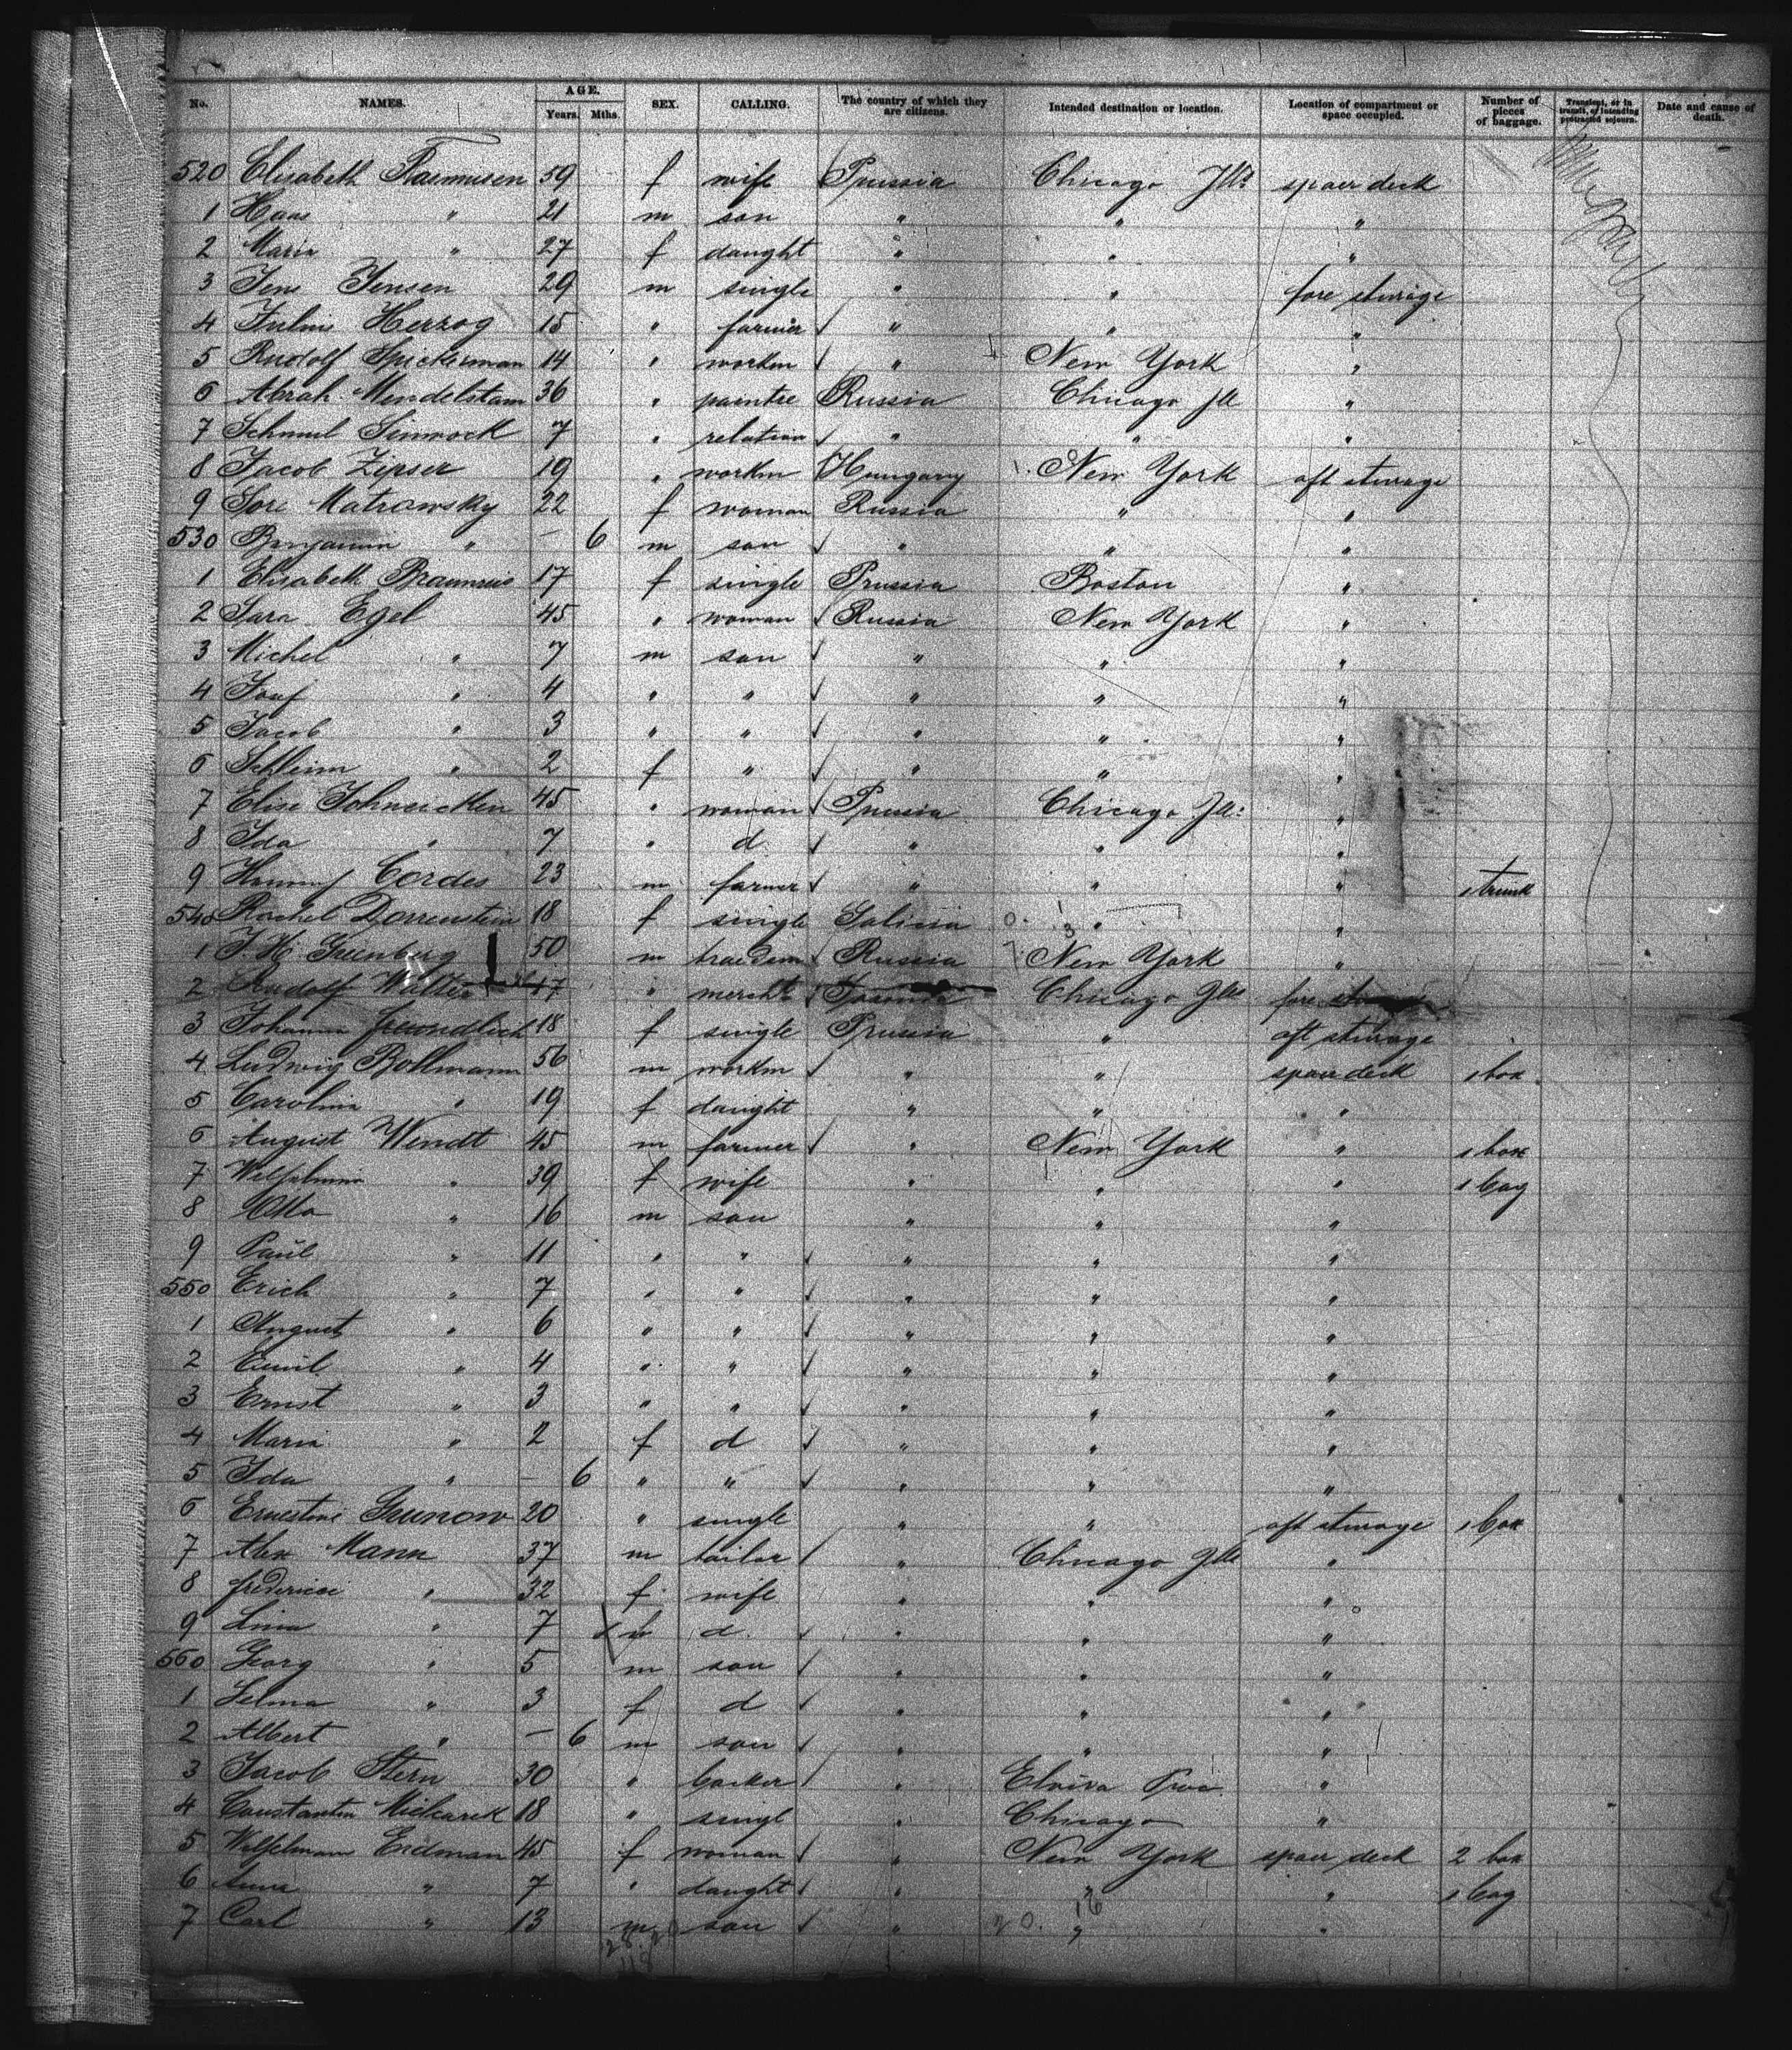 No. NAMES. AGE. Years. Mths. SEX. CALLING. The country of which they are citizens. Intended destination or location. Location of compartment or space occupied. Number of pieces of baggage. Transient, or in transit, or intending protracted sojourn. Date and cause of death.
520 Elisabeth Rasmusen 59 f wife Prussia Chicago Ills spaer deck
1 Hans " 21 m son " " "
2 Maria " 27 f daught " " "
3 Jens Jensen 29 m single " " fore sturage
4 Julius Herzog 15 " farmer " " "
5 Rudolf Spickerman 14 " workm " New York "
6 Abrah. Mendelstam 36 " paintre Russia Chicago Ill "
7 Schmul Simrock 7 " relation " " "
8 Jacob Zipser 19 " workm Hungary New York aft sturage
9 Sore Matrowsky 22 f woman Russia " "
530 Benjamin " – 6 m son " " "
1 Elisabeth 17 f single Prussia Boston "
2 Sara Egel 45 " woman Russia New York "
3 Michel " 7 m son " " "
4 Josef " 4 " " " " "
5 Jacob " 3 " " " " "
6 Schleim " 2 f " " " "
7 Elise Johnsicken 45 " woman Prussia Chicago Ill: "
8 Ida " 7 " d " " "
9 Cordes 23 m farmer " " " 1 trunk
540 Rachel Dorrenstein 18 f single Galicia " "
1 J. H. Grünberg 50 m Russia New York "
2 Rudolf Walter 17 " mercht Chicago Ills fore
3 Johanna Freundlich 18 f single Prussia " aft sturage
4 Ludwig Bollmann 56 m workm " " spaer deck 1 box
5 Carolina " 19 f daught " " "
6 August Wendt 45 m farmer " New York " 1 box
7 Wilhelmine " 39 f wife " " " 1 bag
8 Otto " 16 m son " " "
9 Paul " 11 " " " " "
550 Erich " 7 " " " " "
1 August " 6 " " " " "
2 Emil " 4 " " " " "
3 Ernst " 3 " " " " "
4 Maria " 2 f d " " "
5 Ida " – 6 " " " " "
6 Ernestine Grunow 20 " single " " aft sturage 1 box
7 Alex Mann 37 m tailor " Chicago Ills "
8 " 32 f wife " " "
9 Lina " 7 d. " " "
560 Georg " 5 m son " " "
1 Selma " 3 f d " " "
2 Albert " – 6 m son " " "
3 Jacob Stern 30 " backer " "
4 Constantin Mielcarek 18 " singl " Chicago "
5 Wilhelmann Erdman 45 f woman " New York spaer deck 2 box
6 Anna " 7 " daught " " " 1 bag
7 Carl " 13 m son " " "